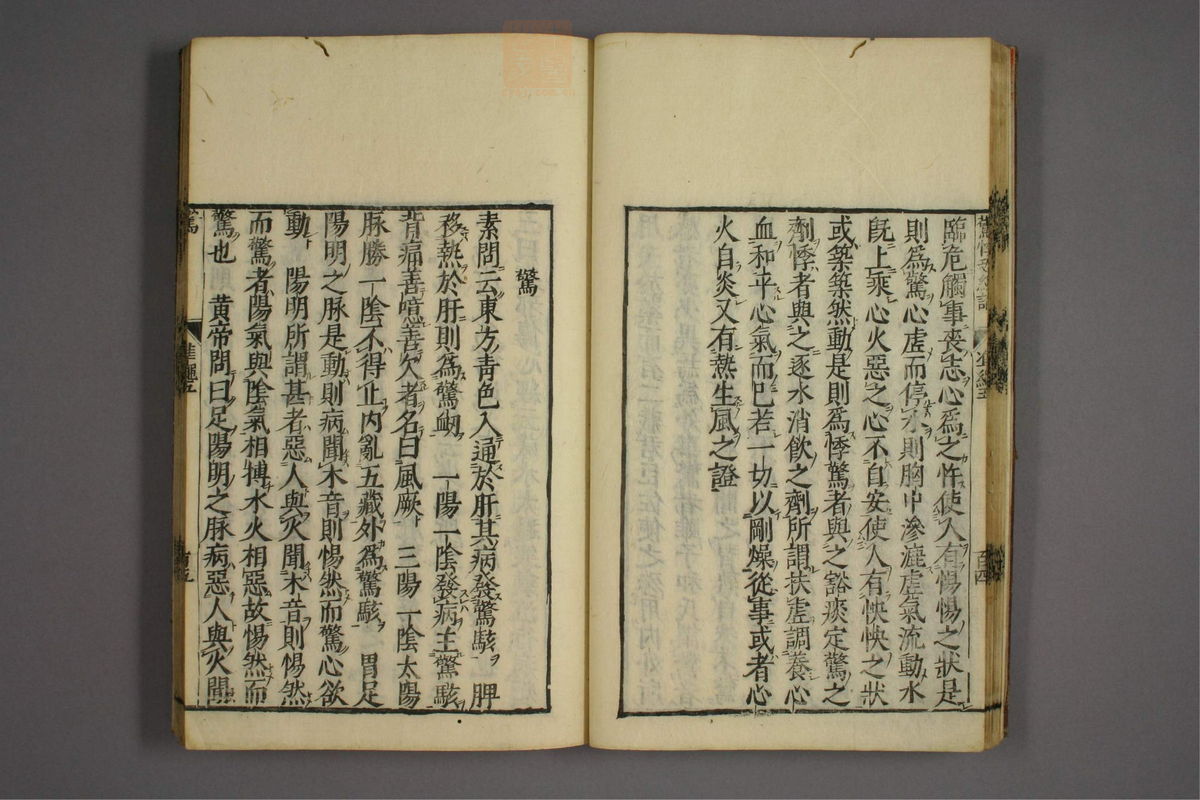 臨危觸事喪志心爲之忤使人有惕惕之狀是
則爲驚心虛而停水則胸中滲漉虛氣流動水
旣上乘心火惡之心不自安使人有怏怏之狀
或築築然動是則爲悸驚者與之豁痰定驚之
劑悸者與之逐水消飲之劑所謂扶虛調養心
血和平心氣而已若一切以剛燥從事或者心
火自炎又有熱生風之證
驚
素問云東方青色入通於肝其病發驚駭 脾
移熱於肝則爲驚衂 一陽一陰發病主驚駭
背痛善噫善欠者名曰風厥 三陽一陰太陽
脉勝一陰不得止内亂五藏外爲驚駭 胃足
陽明之脉是動則病聞木音則惕然而驚心欲
動 陽明所謂甚者惡人與火聞木音則惕然
而驚者陽氣與陰氣相搏水火相惡故惕然而
驚也 黄帝問曰足陽明之脉病惡人與火聞